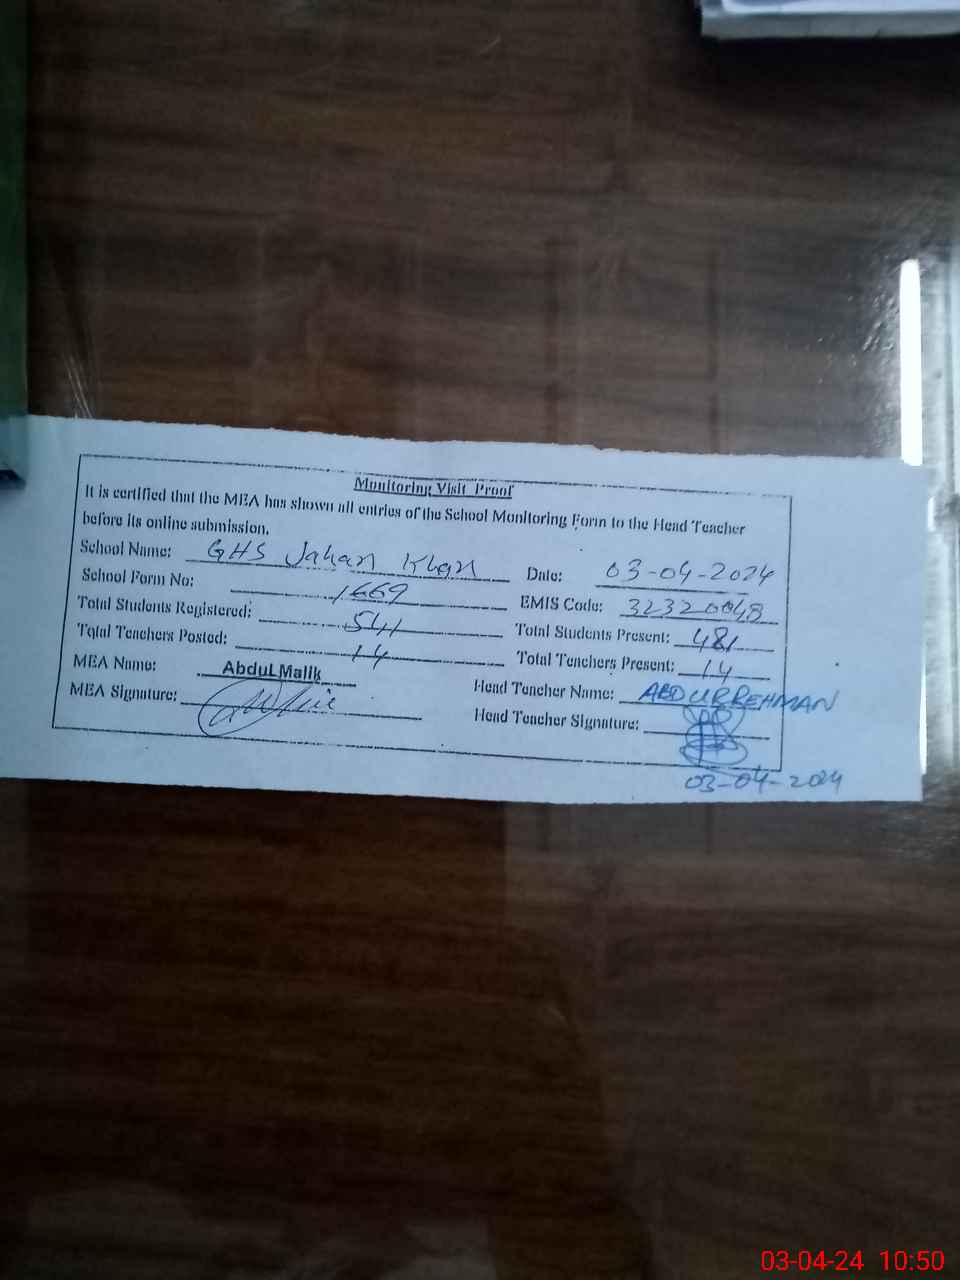 Monitoring Visit Proof
It is certified that the MEA has shown all entries of the School Monitoring Form to the Head Teacher
before its online submission.
School Name: GHS Jahan Khan Date: 03-04-2024
School Form No: 1669 EMIS Code: 32320048
Total Students Registered: 541 Total Students Present: 481
Total Teachers Posted: 14 Total Teachers Present: 14
MEA Name: Abdul Malik Head Teacher Name: ABDURREHMAN
MEA Signature: Head Teacher Signature:
03-04-2024
03-04-24 10:50